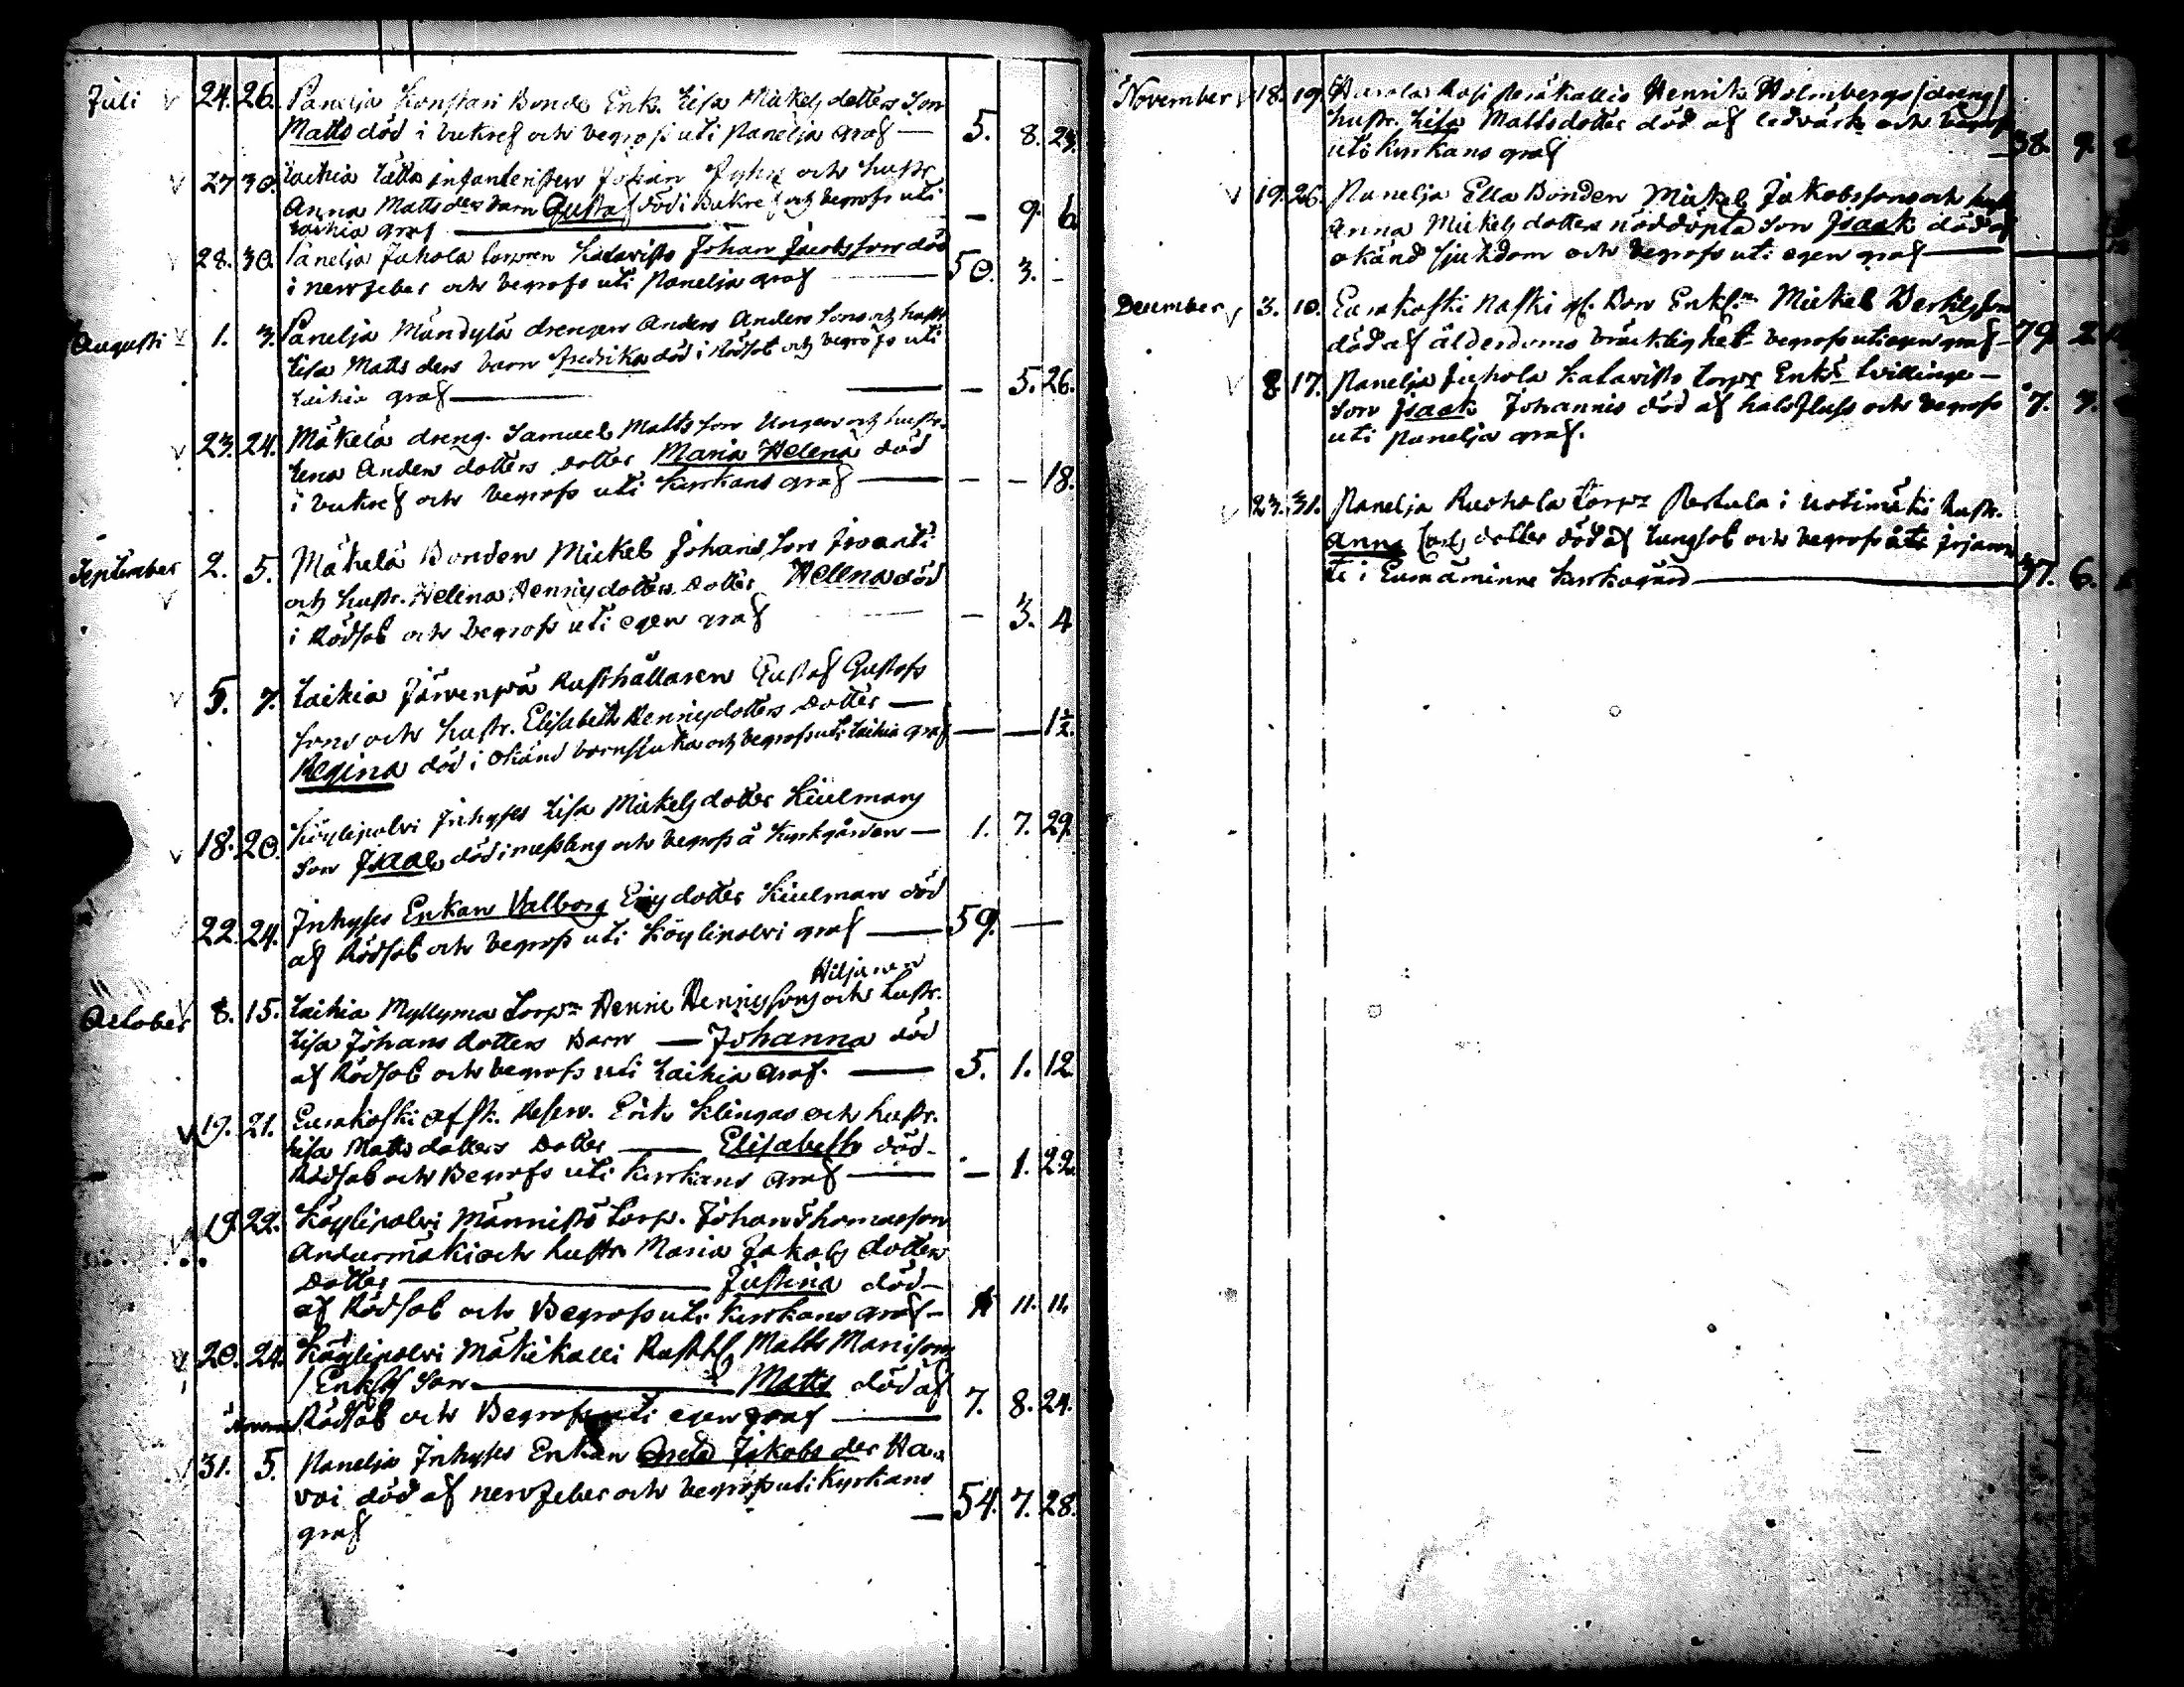 Juli 24. 26. Panelja Konstari Bonde Enk. Lisa Mickels dotters Son
Matts död i bukref och begrofs uti Panelja graf — 5. 8. 23.
27 30. Laihia Lätts infanteristen Johan och hustr.
Anna Matts ders barn Gustaf död i Bukref och begrofs uti — 9. 6.
Laihia graf
28. 30. Panelja Juhola torpren Katavisto Johan Jacobsson död
i nervfeber och begrofs uti Panelja graf — 50. 3. -
Augusti 1. 3. Panelja Mändylä drengen Anders Anders Sons och hustr
Lisa Matts ders barn Fredrika död i Rödsot och begrofs uti
Laihia graf — — 5. 26.
23. 24. Mäkelä dreng. Samuel Mattsson Ungern och hustr.
Lena Anders dotters dotter Maria Helena död
i bukref och begrofs uti kyrkans graf — — — 18.
September 2. 5. Mäkelä Bonden Mickel Johans Son Jvanti
och hustr. Helena Henriksdotters dotter Helena död
i Rödsot och begrofs uti egen graf — 3. 4
5. 7. Laihia Järvenpä Rusthållaren Gustaf Gustafs
sons och hustr. Elisabeth Henriksdotters dotter —
Regina död i okänd barnsjuka och begrofs uti Laihia graf — — 1½.
18. 20. Köylipolvi Inhyses Lisa Mickels dotter Kiulmans
Son Isaac död i messling och begrofs å kyrkgården — 1. 7. 29.
22. 24. Inhyses Enkan Valborg Erics dotter Kiulman död
af Rödsot och begrofs uti Köylipolvi graf — 59. —
Hiljanen
October 8. 15. Laihia Myllymä Torpn Henric Henricssons och hustr.
Lisa Johans dotters Barn — Johanna död
af Rödsot och begrofs uti Laihia graf. — 5. 1. 12.
19. 21. Eurakoski afsk. Reserv. Erik Klingas och hustr.
Lisa Matts dotters Dotter — Elisabeth död
Rödsot och Begrofs uti kyrkans graf — — 1. 22.
19. 22. Köylipolvi Männistö Torp. Johan Thomasson
Andurmäki och hustr. Maria Jakobs dotters
Dotter — Justina död —
af Rödsot och Begrofs uti kyrkans graf — 11. 11.
20. 24. Köylipolvi Mäkikalli Rusth. Matts
Enkl. Son — Matts död af
Rödsot och Begrofs uti egen graf — 7. 8. 24.
31. 5. Panelja Inhyses Enkan Jakobs der Ha-
voi död af nervfeber och begrofs uti Kyrkans
graf — 54. 7. 28.
November 18. 19. Peräkallio Henrik Holmbergs (dreng)
hustr. Lisa Mattsdotter död af ledvärk och begrofs
uti kyrkans graf — 38. 9.
19. 26. Panelja Ella Bonden Mickel Jakobssons och
Anna Mickels dotters döddöpta Son Isaak död af
okänd sjukdom och begrofs uti egen graf —
December 3. 10. Eurakoski Naski Mickel
död af ålderdoms bräcklighet begrofs uti egen graf — 79. 2.
8 17. Panelja Juhola Katavisto Torps Enks tvillinge —
Son Isaak Johannis död af halsfluss och begrofs 7. 7.
uti Panelja graf.
23. 31. Panelja Ruohola torpr i hustr.
Anna dotter död af lungsot och begrofs
i Euraåminne kyrkogård — 37. 6.